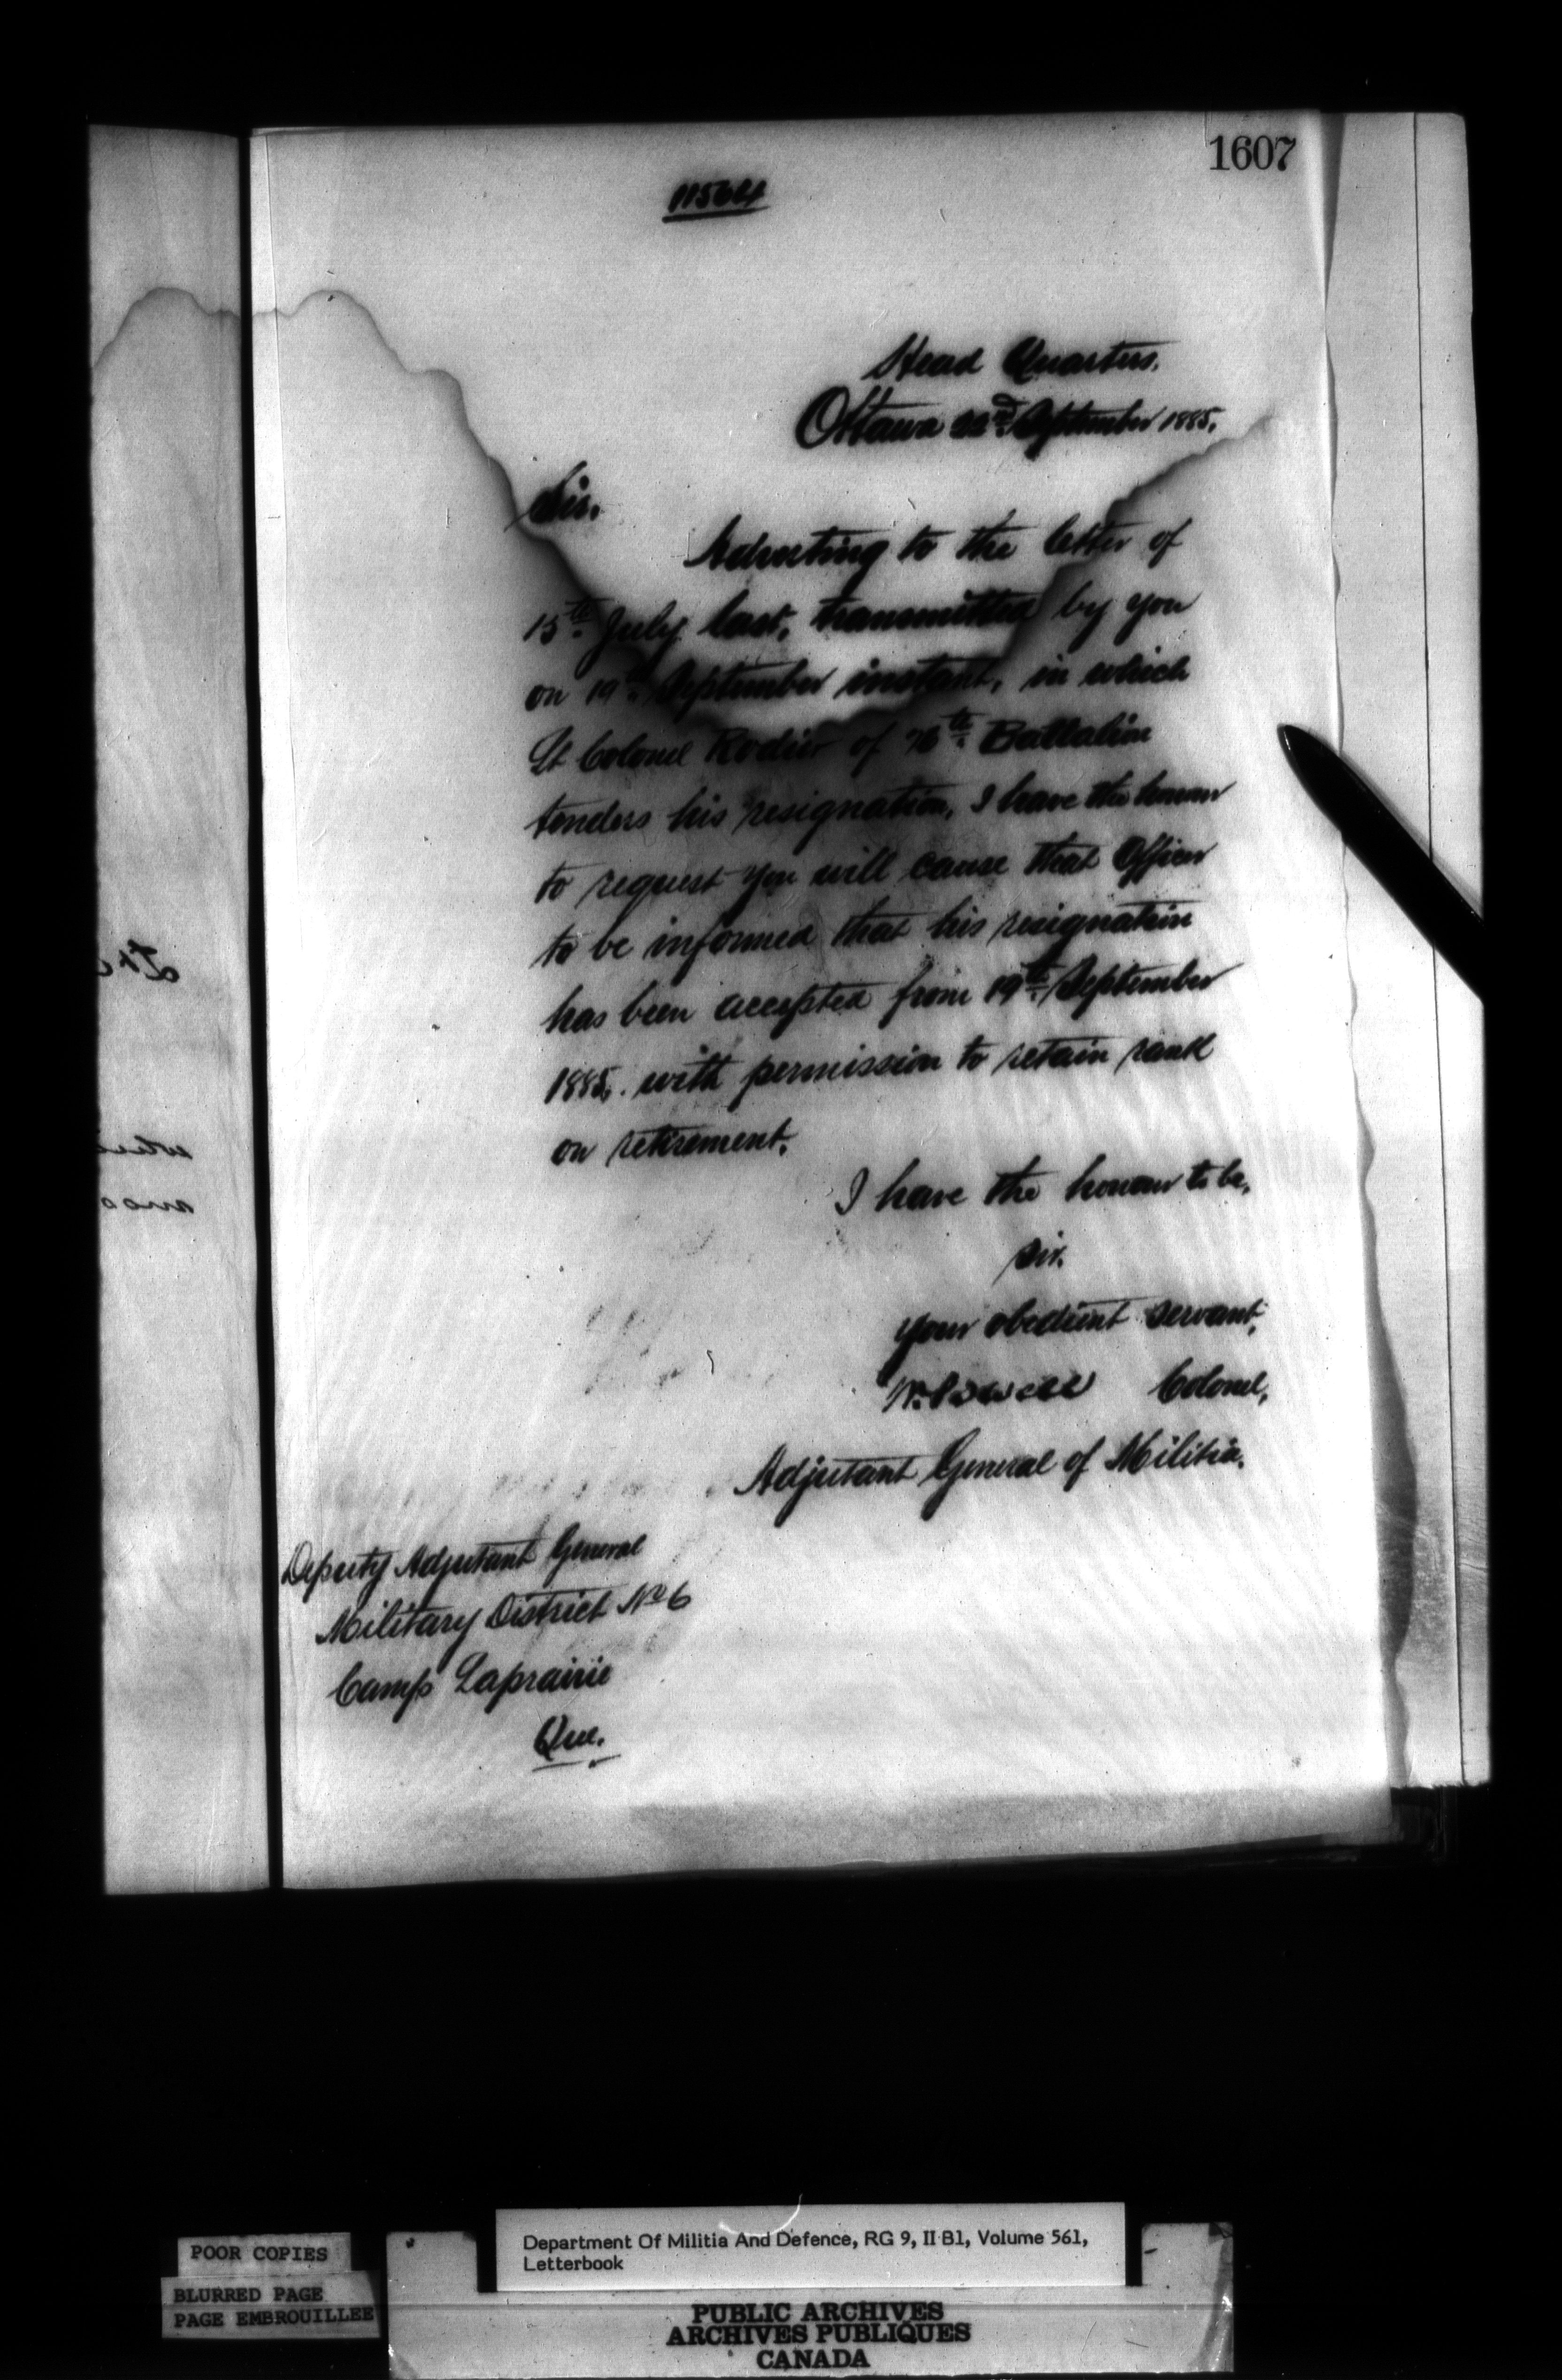 1607
11564
Head Quarters.
Ottawa 22nd September 1885.
Sir.
Adverting to the letter of
15th July last, transmitted by you
on 19th September instant, in which
Lt Colonel Rodier of 76th Battalion
tenders his resignation, I have the honour
to request you will cause that Officer
to be informed that his resignation
has been accepted from 19th September
1885. with permission to retain rank
on retirement.
I have the honour to be,
Sir.
your obedient servant,
W. Powell Colonel,
Adjutant General of Militia.
Deputy Adjutant General
Military District No 6
Camp Laprairie
Que.
POOR COPIES
BLURRED PAGE
PAGE EMBROUILLEE
Department Of Militia And Defence, RG 9, II B1, Volume 561,
Letterbook
PUBLIC ARCHIVES
ARCHIVES PUBLIQUES
CANADA